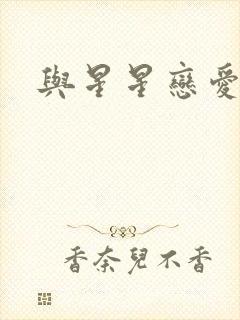 與星星戀愛
香奈兒不香